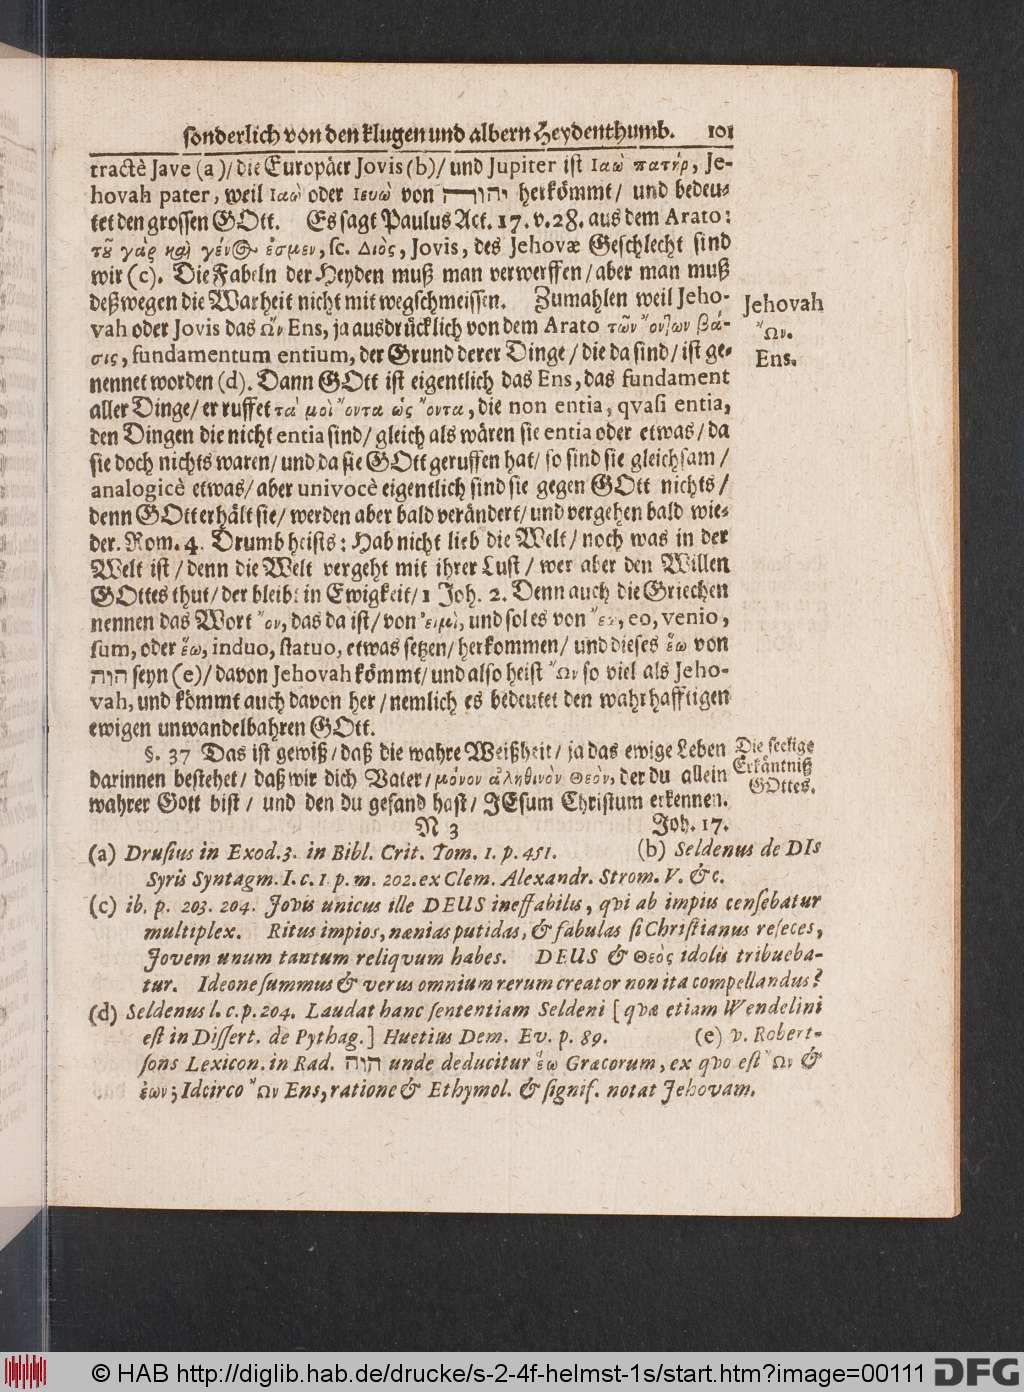 sonderlich von den klugen und albern Heydenthumb. 101
tractè Jave (a) / die Europäer Jovis (b) / und Jupiter ist Ιαὼ πατήρ, Je-
hovah pater, weil Ιαὼ oder Ιευὼ von יהוה herkömmt / und bedeu-
tet den grossen GOtt. Es sagt Paulus Act. 17. v. 28. aus dem Arato:
τοῦ γὰρ καὶ γένος ἐσμεν, sc. Διὸς, Jovis, des Jehovæ Geschlecht sind
wir (c). Die Fabeln der Heyden muß man verwerffen / aber man muß
deßwegen die Warheit nicht mit wegschmeissen. Zumahlen weil Jeho-
vah oder Jovis das Ὢν Ens, ja ausdrücklich von dem Arato τῶν ὄντων βά-
σις, fundamentum entium, der Grund derer Dinge / die da sind / ist ge-
nennet worden (d). Dann GOtt ist eigentlich das Ens, das fundament
aller Dinge / er ruffet τὰ μοὶ ὄντα ὡς ὄντα, die non entia, qvasi entia,
den Dingen die nicht entia sind / gleich als wären sie entia oder etwas / da
sie doch nichts waren / und da sie GOtt geruffen hat / so sind sie gleichsam /
analogicè etwas / aber univocè eigentlich sind sie gegen GOtt nichts /
denn GOtt erhält sie / werden aber bald verändert / und vergehen bald wie-
der. Rom. 4. Drumb heists: Hab nicht lieb die Welt / noch was in der
Welt ist / denn die Welt vergeht mit ihrer Lust / wer aber den Willen
GOttes thut / der bleibt in Ewigkeit / 1 Joh. 2. Denn auch die Griechen
nennen das Wort ὄν, das da ist / von εἰμὶ, und soles von eo, venio,
sum, oder ἕω, induo, statuo, etwas setzen / herkommen / und dieses ἕω von
הוה seyn (e) / davon Jehovah kömmt / und also heist Ὢν so viel als Jeho-
vah, und kömmt auch davon her / nemlich es bedeutet den wahrhafftigen
ewigen unwandelbahren GOtt.
Jehovah
Ὢν.
Ens.
§. 37 Das ist gewiß / daß die wahre Weißheit / ja das ewige Leben
darinnen bestehet / daß wir dich Vater / μόνον ἀληθινὸν Θεὸν, der du allein
wahrer Gott bist / und den du gesand hast / JEsum Christum erkennen.
Die seelige
Erkäntniß
GOttes.
N 3 Joh. 17.
(a) Drusius in Exod. 3. in Bibl. Crit. Tom. 1. p. 451. (b) Seldenus de DIs
Syris Syntagm. I. c. 1. p. m. 202. ex Clem. Alexandr. Strom. V. &c.
(c) ib. p. 203. 204. Jovis unicus ille DEUS ineffabilis, qvi ab impiis censebatur
multiplex. Ritus impios, nænias putidas, & fabulas si Christianus reseces,
Jovem unum tantum reliqvum habes. DEUS & Θεὸς idolis tribueba-
tur. Ideone summus & verus omnium rerum creator non ita compellandus?
(d) Seldenus l. c. p. 204. Laudat hanc sententiam Seldeni [quæ etiam Wendelini
est in Dissert. de Pythag.] Huetius Dem. Ev. p. 89. (e) v. Robert-
sons Lexicon. in Rad. הוה unde deducitur ἕω Græcorum, ex qvo est Ὢν &
ἐων; Idcirco Ὢν Ens, ratione & Ethymol. & signif. notat Jehovam.
© HAB http://diglib.hab.de/drucke/s-2-4f-helmst-1s/start.htm?image=00111 DFG